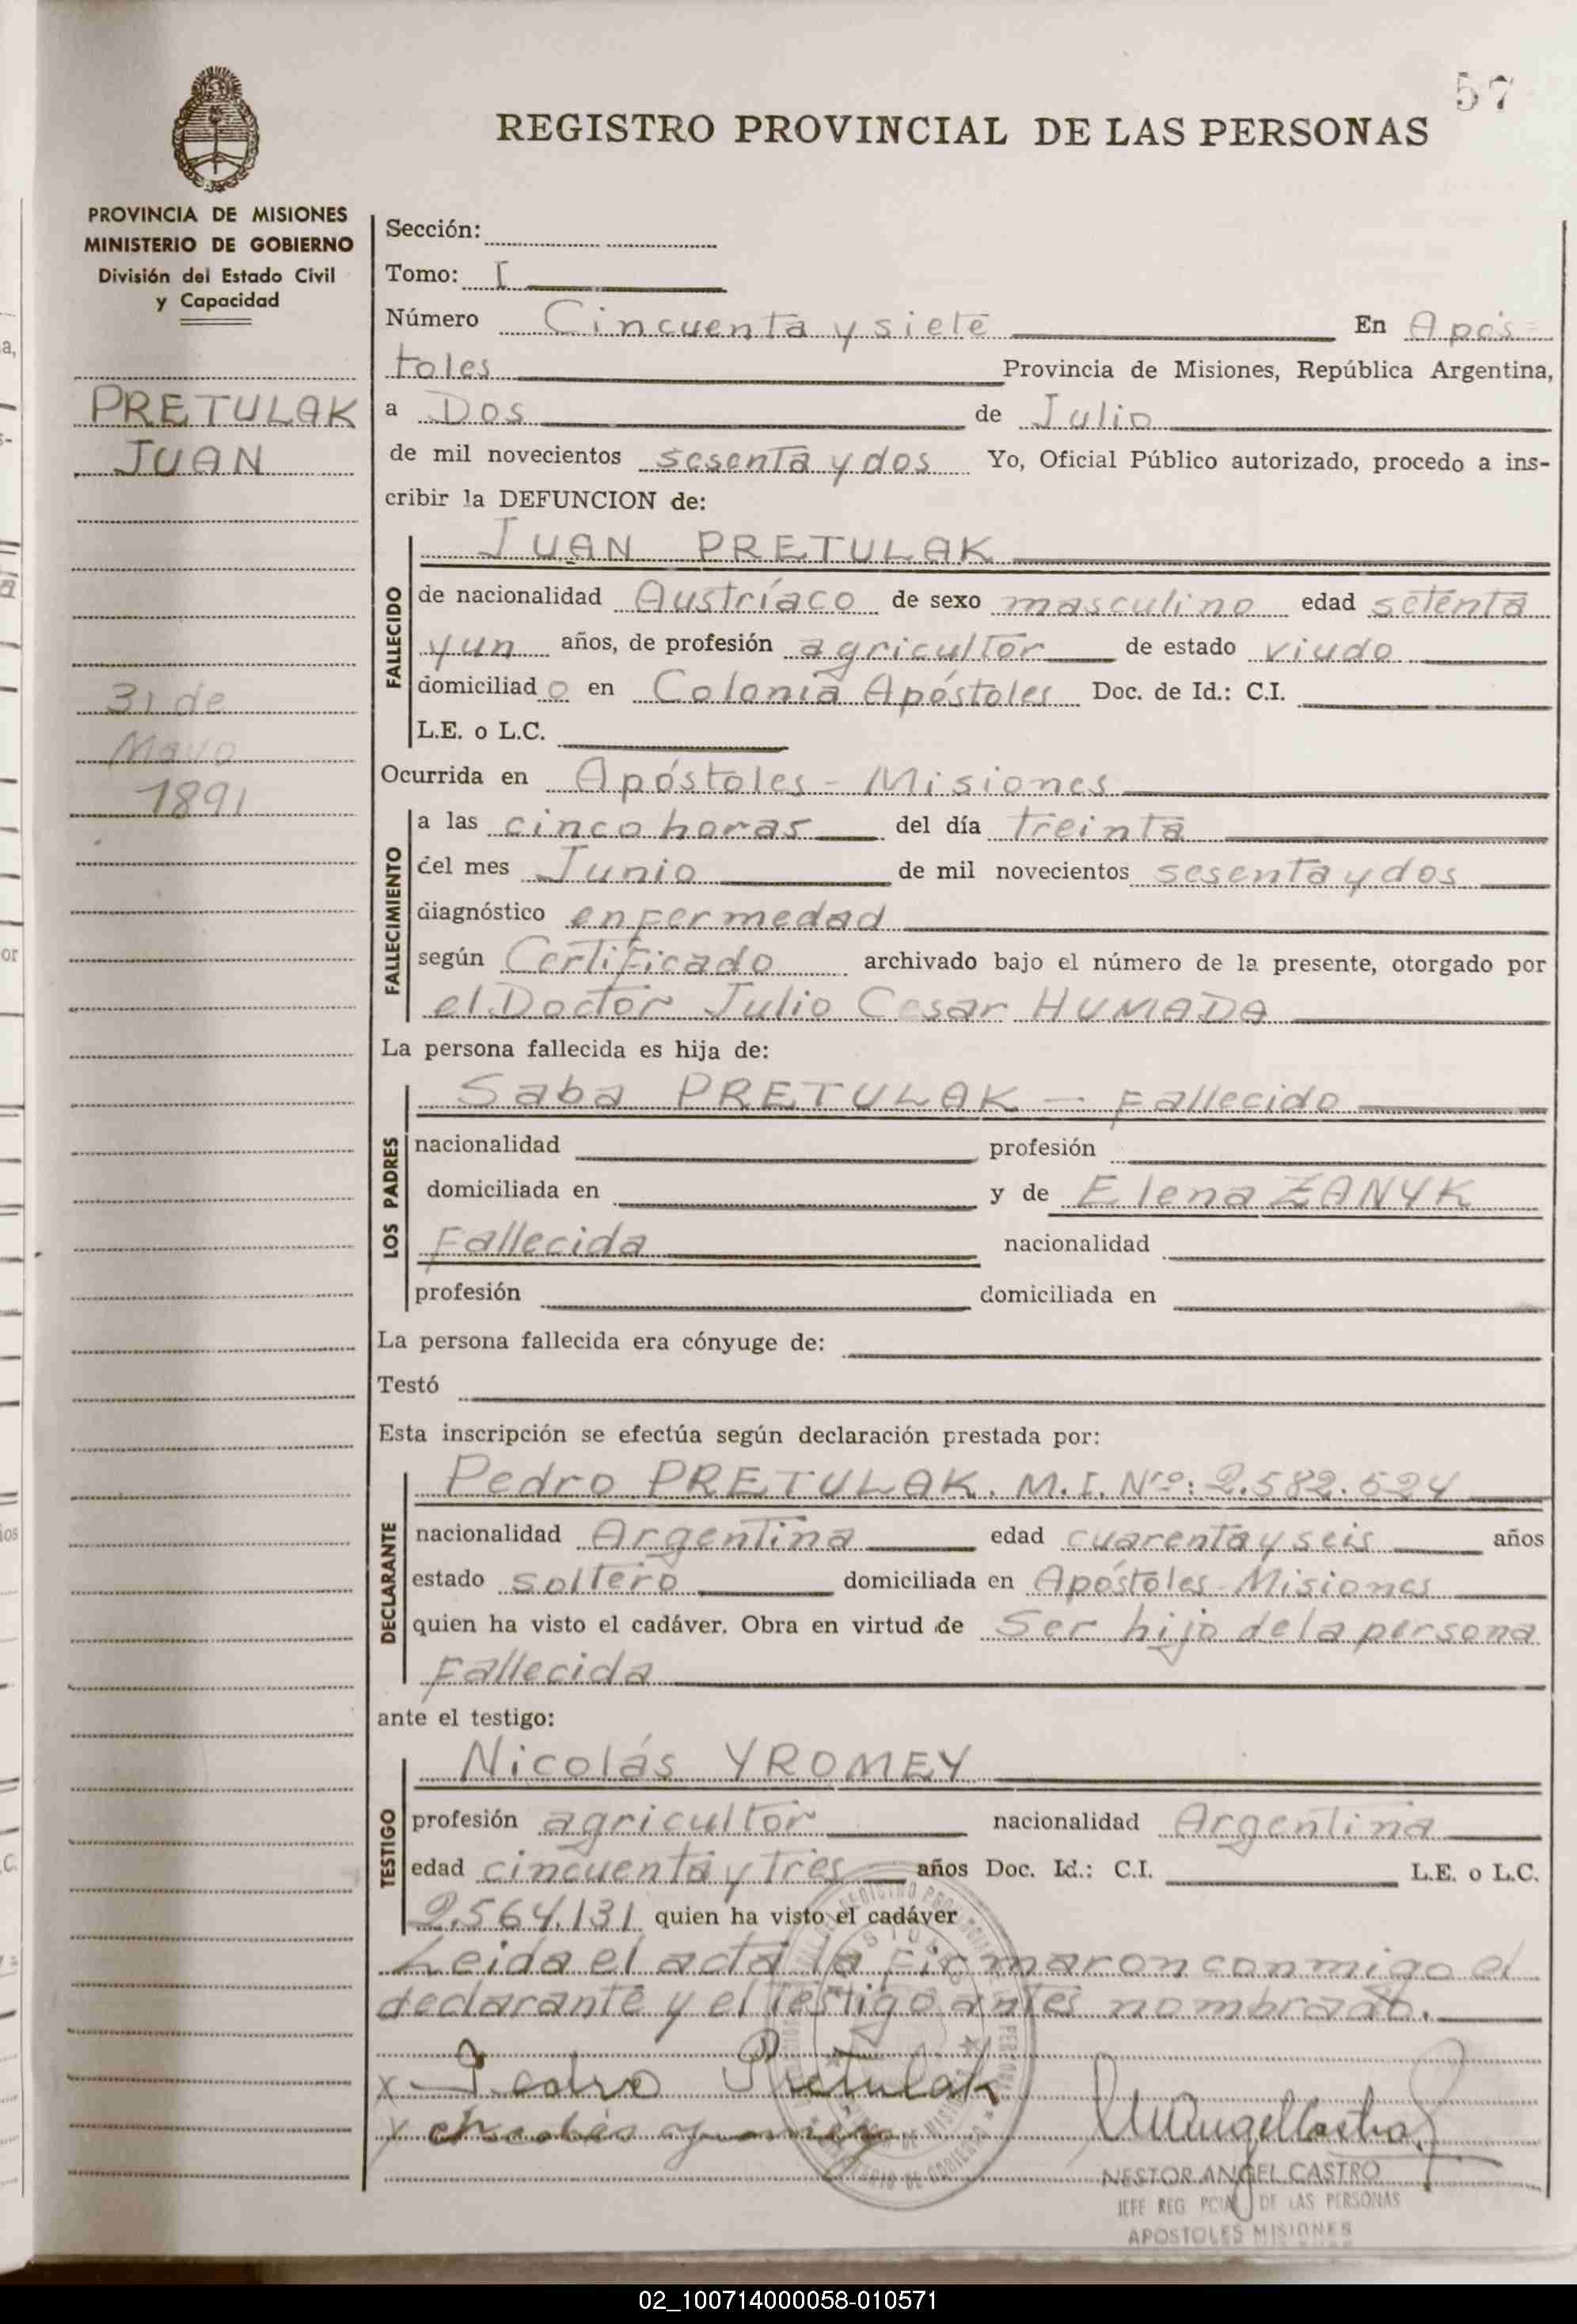 57
REGISTRO PROVINCIAL DE LAS PERSONAS
PROVINCIA DE MISIONES
MINISTERIO DE GOBIERNO
División del Estado Civil
y Capacidad
PRETULAK
JUAN
31 de
Mayo
1891
Sección:
Tomo: I
Número Cincuenta y siete En Após-
toles Provincia de Misiones, República Argentina,
a Dos de Julio
de mil novecientos sesenta y dos Yo, Oficial Público autorizado, procedo a ins-
cribir la DEFUNCION de:
FALLECIDO
JUAN PRETULAK
de nacionalidad Austríaco de sexo masculino edad setenta
y un años, de profesión agricultor de estado viudo
domiciliad o en Colonia Apóstoles Doc. de Id.: C.I.
L.E. o L.C.
Ocurrida en Apóstoles - Misiones
FALLECIMIENTO
a las cinco horas del día treinta
del mes Junio de mil novecientos sesenta y dos
diagnóstico enfermedad
según Certificado archivado bajo el número de la presente, otorgado por
el Doctor Julio Cesar HUMADA
La persona fallecida es hija de:
LOS PADRES
Saba PRETULAK - Fallecido
nacionalidad profesión
domiciliada en y de Elena ZANYK
Fallecida nacionalidad
profesión domiciliada en
La persona fallecida era cónyuge de:
Testó
Esta inscripción se efectúa según declaración prestada por:
DECLARANTE
Pedro PRETULAK. M.I. Nro: 2.582.524
nacionalidad Argentina edad cuarenta y seis años
estado soltero domiciliada en Apóstoles - Misiones
quien ha visto el cadáver. Obra en virtud de Ser hijo de la persona
Fallecida
ante el testigo:
TESTIGO
Nicolás YROMEY
profesión agricultor nacionalidad Argentina
edad cincuenta y tres años Doc. Id.: C.I. L.E. o L.C.
2.564.131 quien ha visto el cadáver
Leida el acta la Firmaron conmigo el
declarante y el testigo antes nombrado.
x Pedro Pretulak
NESTOR ANGEL CASTRO
JEFE REG. PCIAL DE LAS PERSONAS
APOSTOLES MISIONES
02_100714000058-010571